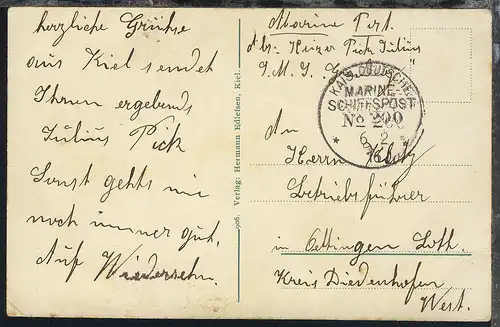 herzliche Grühse
aus Kiel sendet
Ihnen ergebenst
Julius Pick
Sonst gehts mir
noch immer gut.
Auf Wiedersehn.
906. Verlag: Hermann Edlefsen, Kiel.
Marine Pst.
Abs: Heizer Pick Julius
S.M.S.
KAIS. DEUTSCHE
MARINE-
SCHIFFSPOST
No 200
6 2
16
An
Herrn
Betriebsführer
in Oettingen Loth.
Kreis Diedenhofen
West.